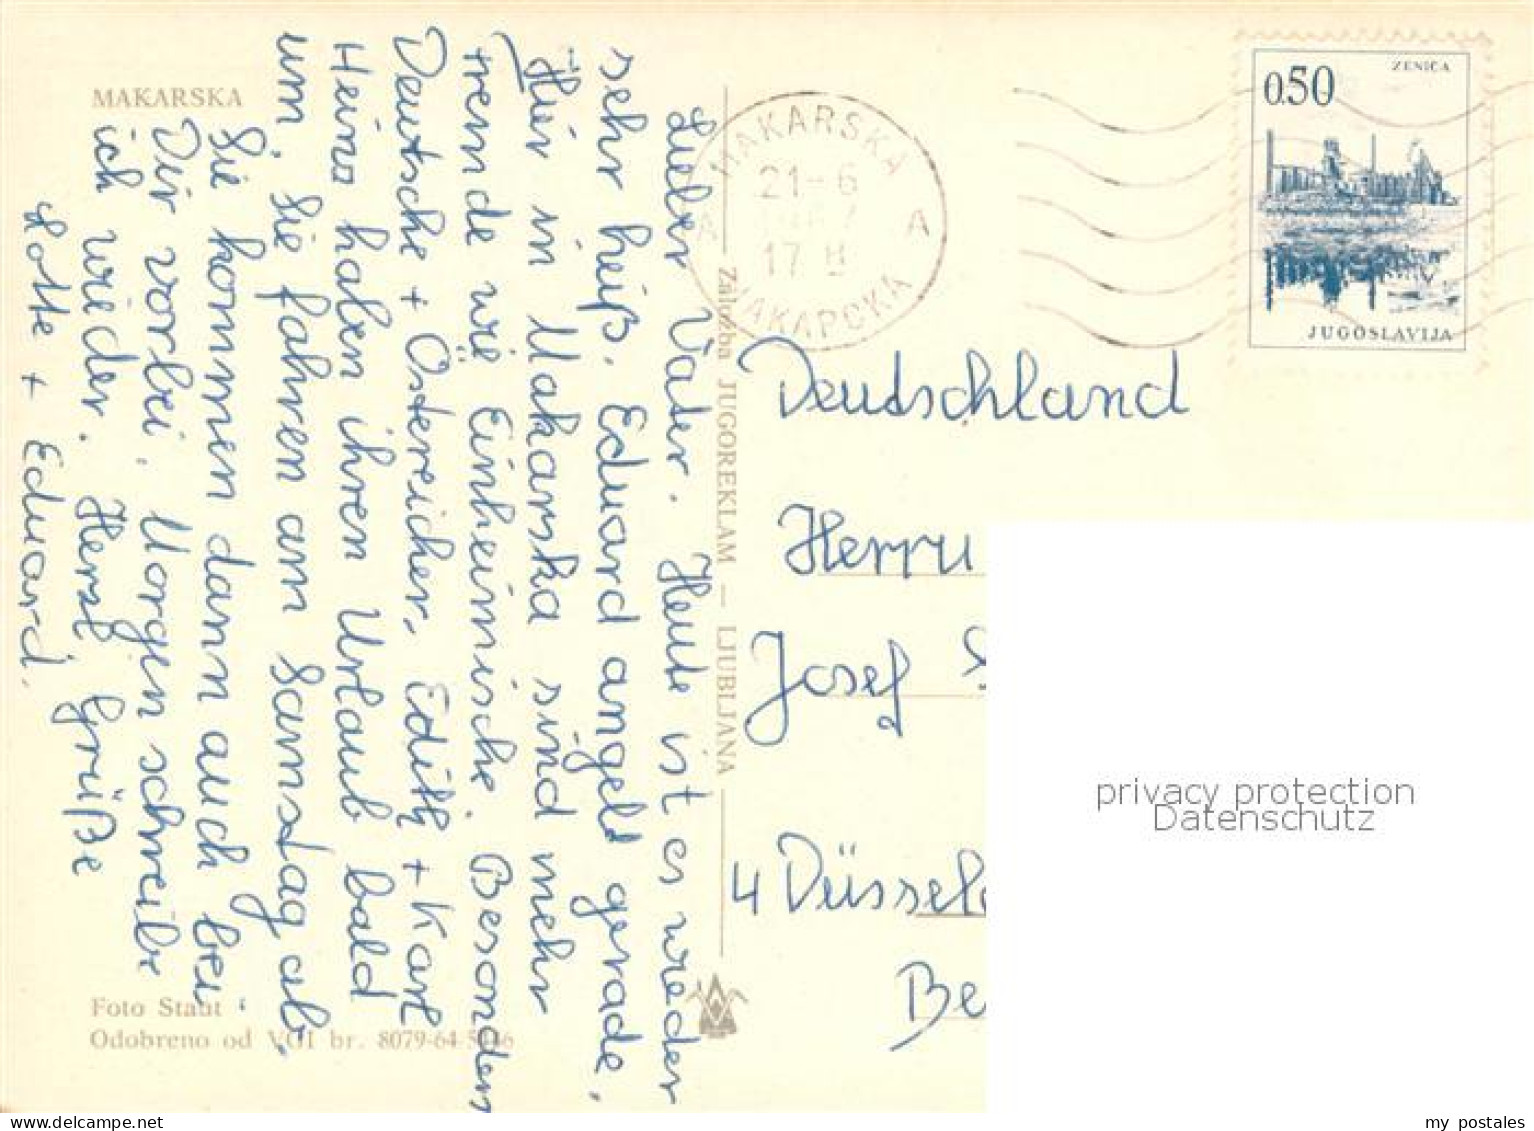 MAKARSKA
Lieber Vater. Heute ist es wieder
sehr heiß. Eduard angelt gerade.
Hier in Makarska sind mehr
Fremde wie Einheimische. Besonders
Deutsche + Östereicher. Edith + Karl
Heinz haben ihren Urlaub bald
um. Sie fahren am Samstag ab.
Sie kommen dann auch bei
Dir vorbei. Morgen schreibe
ich wieder. Herzl. Grüße
Lotte + Eduard.
Foto Staut
Odobreno od VGI br. 8079-64
Založba JUGOREKLAM — LJUBLJANA
MAKARSKA
21-6
17
A A
МАКАРСКА
0.50
ZENICA
JUGOSLAVIJA
Deutschland
Herrn
Josef
4 Düsseld
Be
privacy protection
Datenschutz
my postales